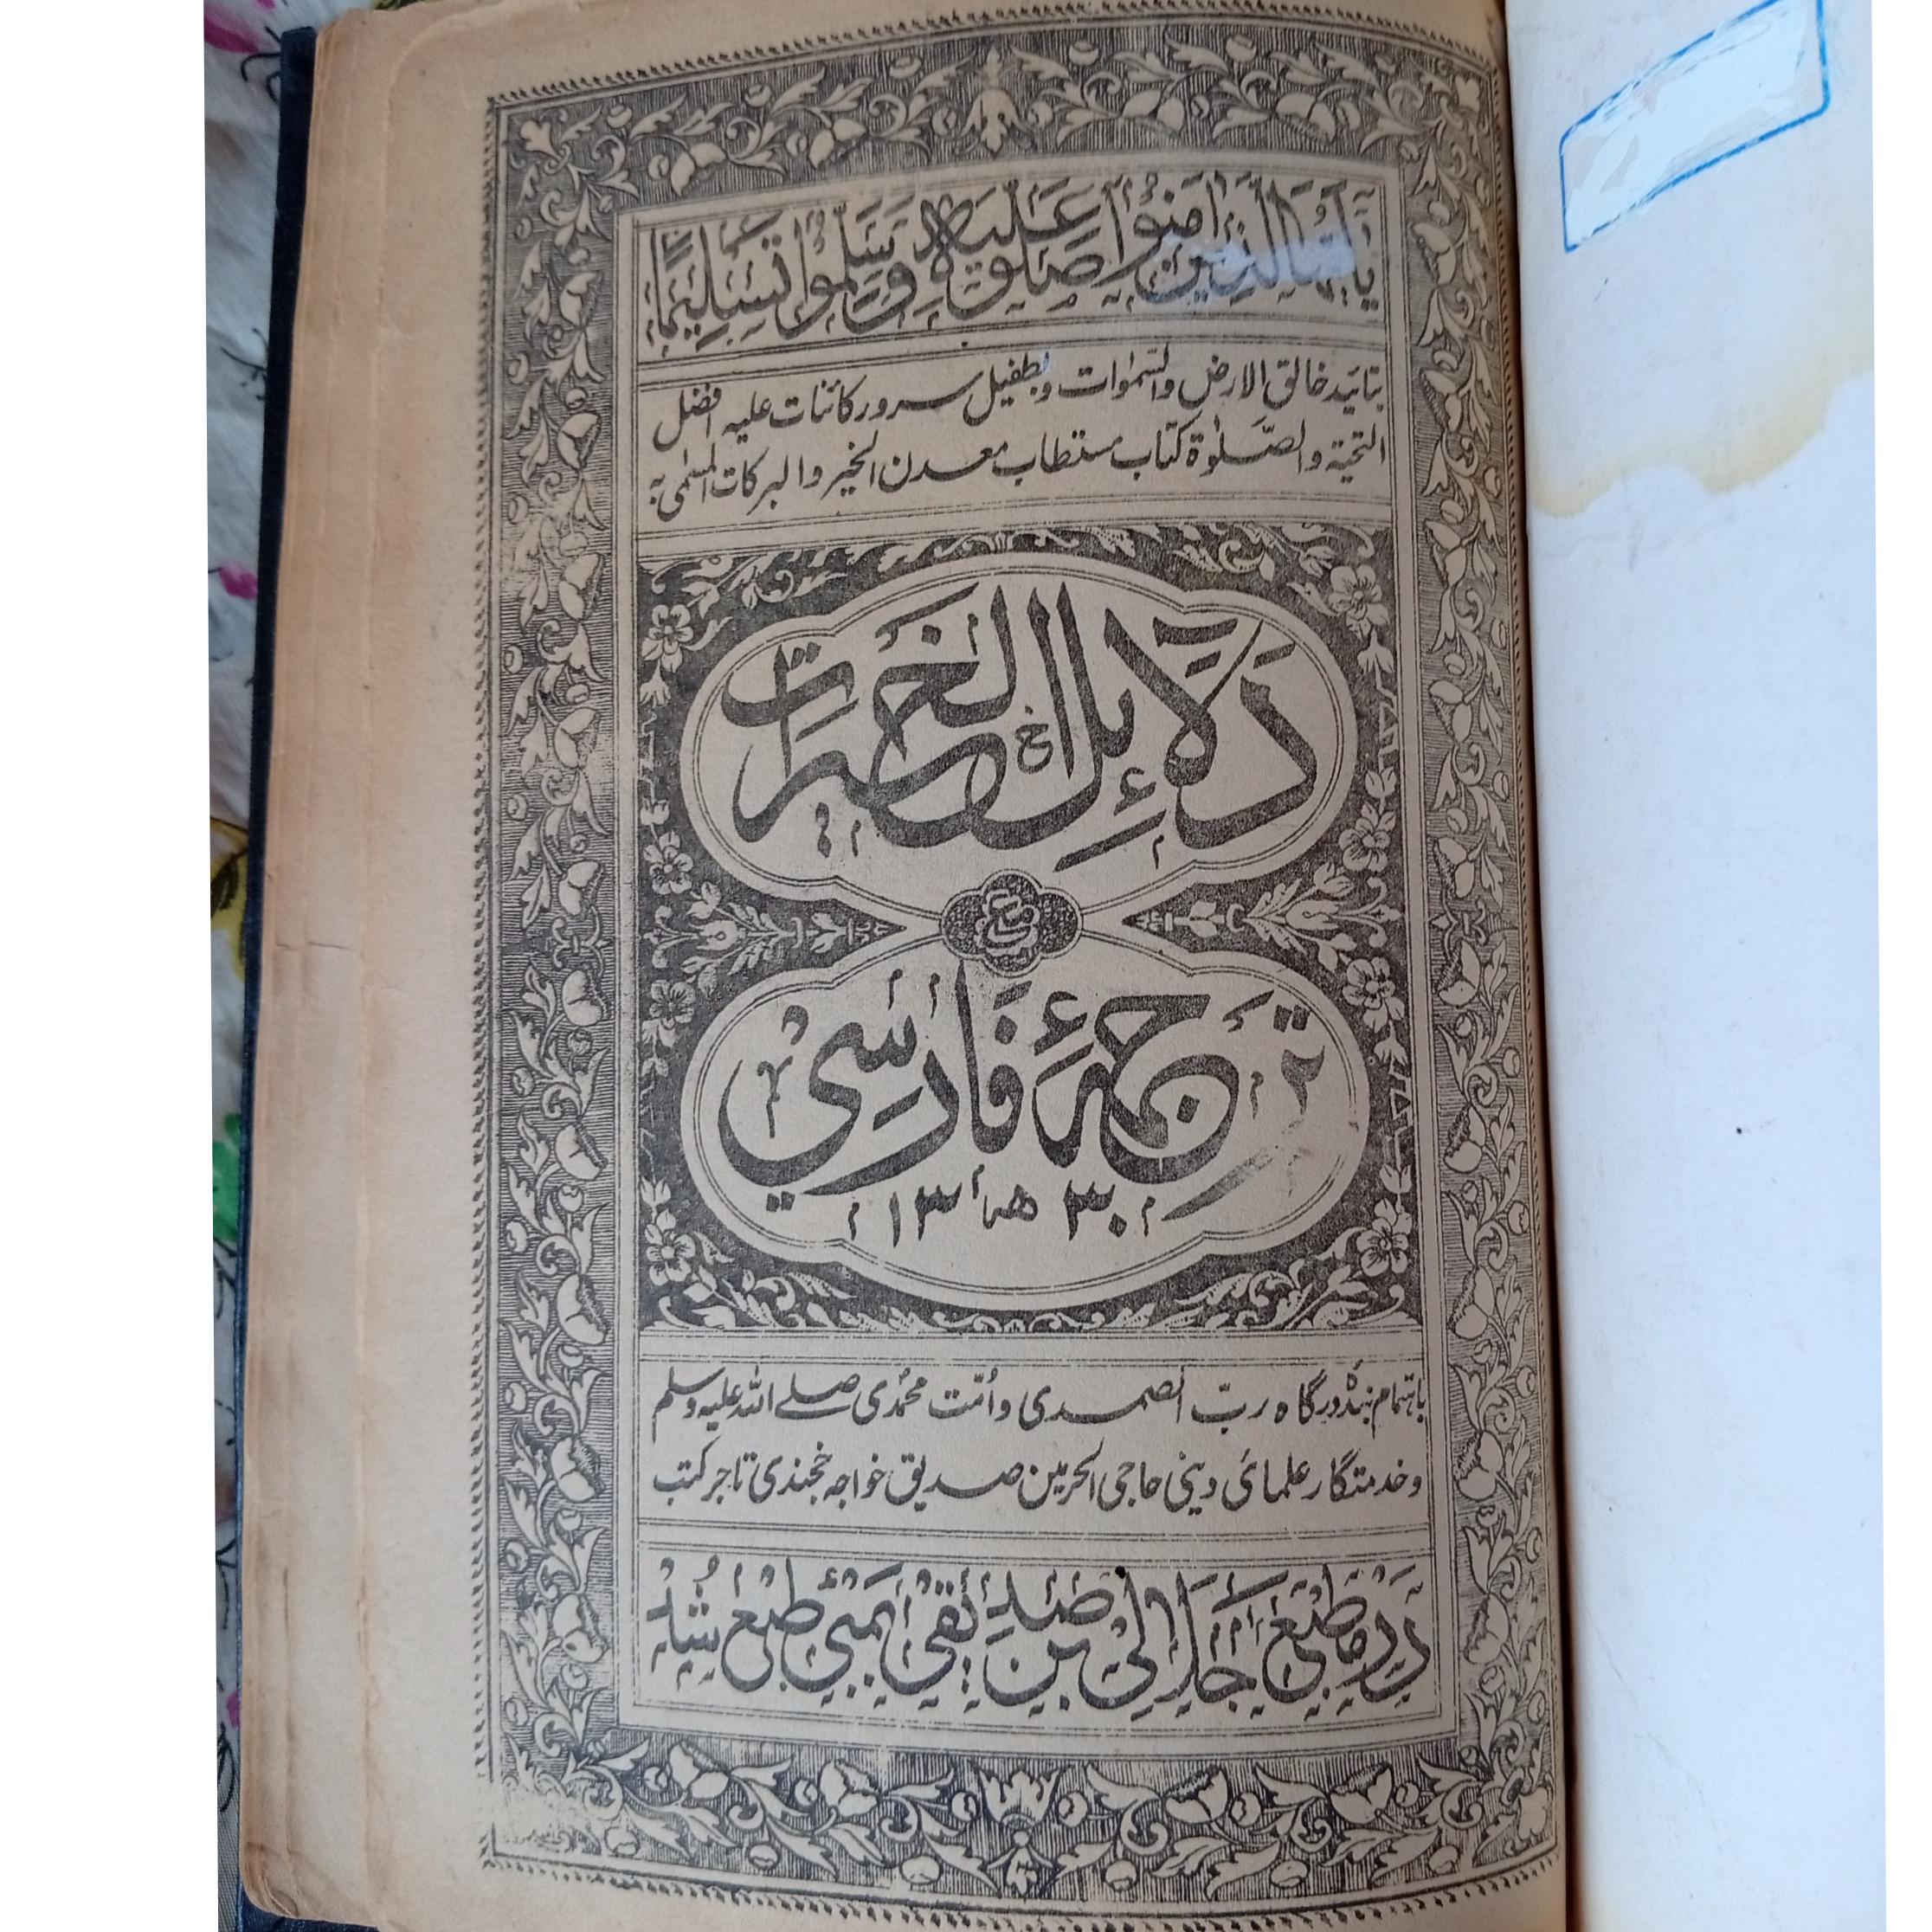 يَا أَيُّهَا الَّذِينَ آمَنُوا صَلُّوا عَلَيْهِ وَسَلِّمُوا تَسْلِيمًا
بتائید خالق الارض والسمٰوات وبطفیل سرور کائنات علیہ افضل
التحیۃ والصلوٰۃ کتاب مستطاب معدن الخیر والبرکات المسمٰی بہ
دَلَائِلُ الْخَيْرَات
مع
تَرجمۂ فَارسِي
۱۳ھ۳۰
باہتمام بندۂ درگاہ ربّ الصمدی واُمّت محمّدی صلے اللہ علیہ وسلم
وخدمتگار علمائ دینی حاجی الحرمین صدیق خواجہ خجندی تاجر کتب
دَر مطبع بمبئی طبع شد